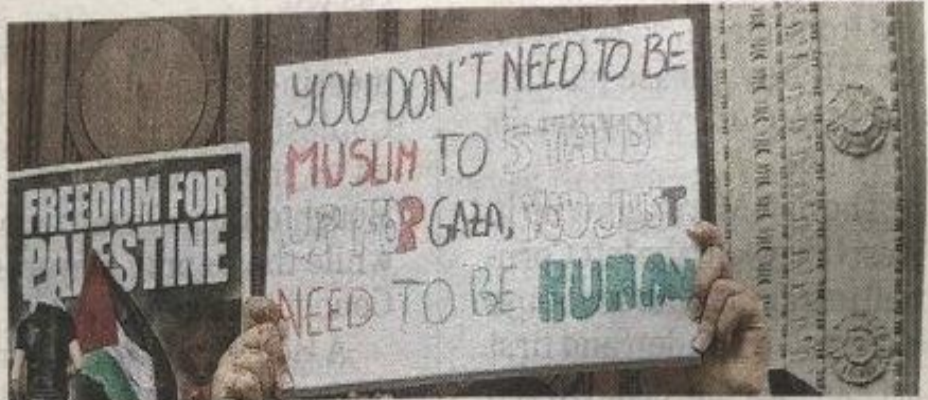 FREEDOM FOR
PALESTINE
YOU DON'T NEED TO BE
MUSLIM TO STAND
UP FOR GAZA, YOU JUST
NEED TO BE HUMAN